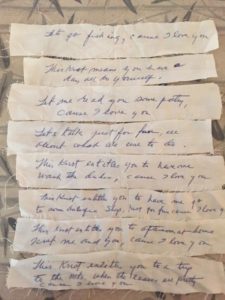 Let's go fishing, cause I love you
This Knot means you have a
day all to yourself.
Let me read you some poetry,
cause I love you
Let's talk just for fun,
about what we use to do.
This Knot entitles you to have me
wash the dishes, cause I love you
This Knot entitles you to have me go
to some antique shop, just for fun cause I love you
This Knot entitles you to afternoon at home
just me and you, cause I love you
This Knot entitles you to a trip
to the when the are pretty
cause I love you